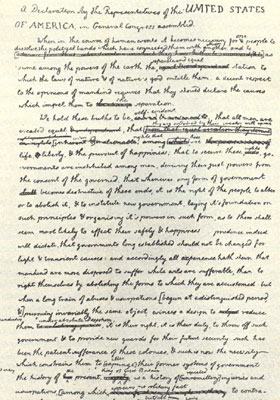 A Declaration by the Representatives of the UNITED STATES
OF AMERICA, in General Congress assembled.
When in the course of human events it becomes necessary for one people to
dissolve the political bands which have connected them with another, and to
separate and equal
sume among the powers of the earth the station to
which the laws of nature & of nature's god entitle them, a decent respect
to the opinions of mankind requires that they should declare the causes
which impel them to the separation.
We hold these truths to be self-evident; that all men are
created equal
life & liberty, & the pursuit of happiness; that to secure these rights, go-
vernments are instituted among men, deriving their just powers from
the consent of the governed; that whenever any form of government
becomes destructive of these ends, it is the right of the people to alter
or to abolish it, & to institute new government, laying it's foundation on
such principles & organising it's powers in such form, as to them shall
seem most likely to effect their safety & happiness. prudence indeed
will dictate that governments long established should not be changed for
light & transient causes: and accordingly all experience hath shewn that
mankind are more disposed to suffer while evils are sufferable, than to
right themselves by abolishing the forms to which they are accustomed. but
when a long train of abuses & usurpations [begun at a distinguished period
&] pursuing invariably the same object, evinces a design to reduce
them it is their right, it is their duty, to throw off such
government & to provide new guards for their future security. such has
been the patient sufferance of these colonies; & such is now the necessity
which constrains them to their former systems of government.
the history of the present is a history of injuries and
usurpations [among which to contra-